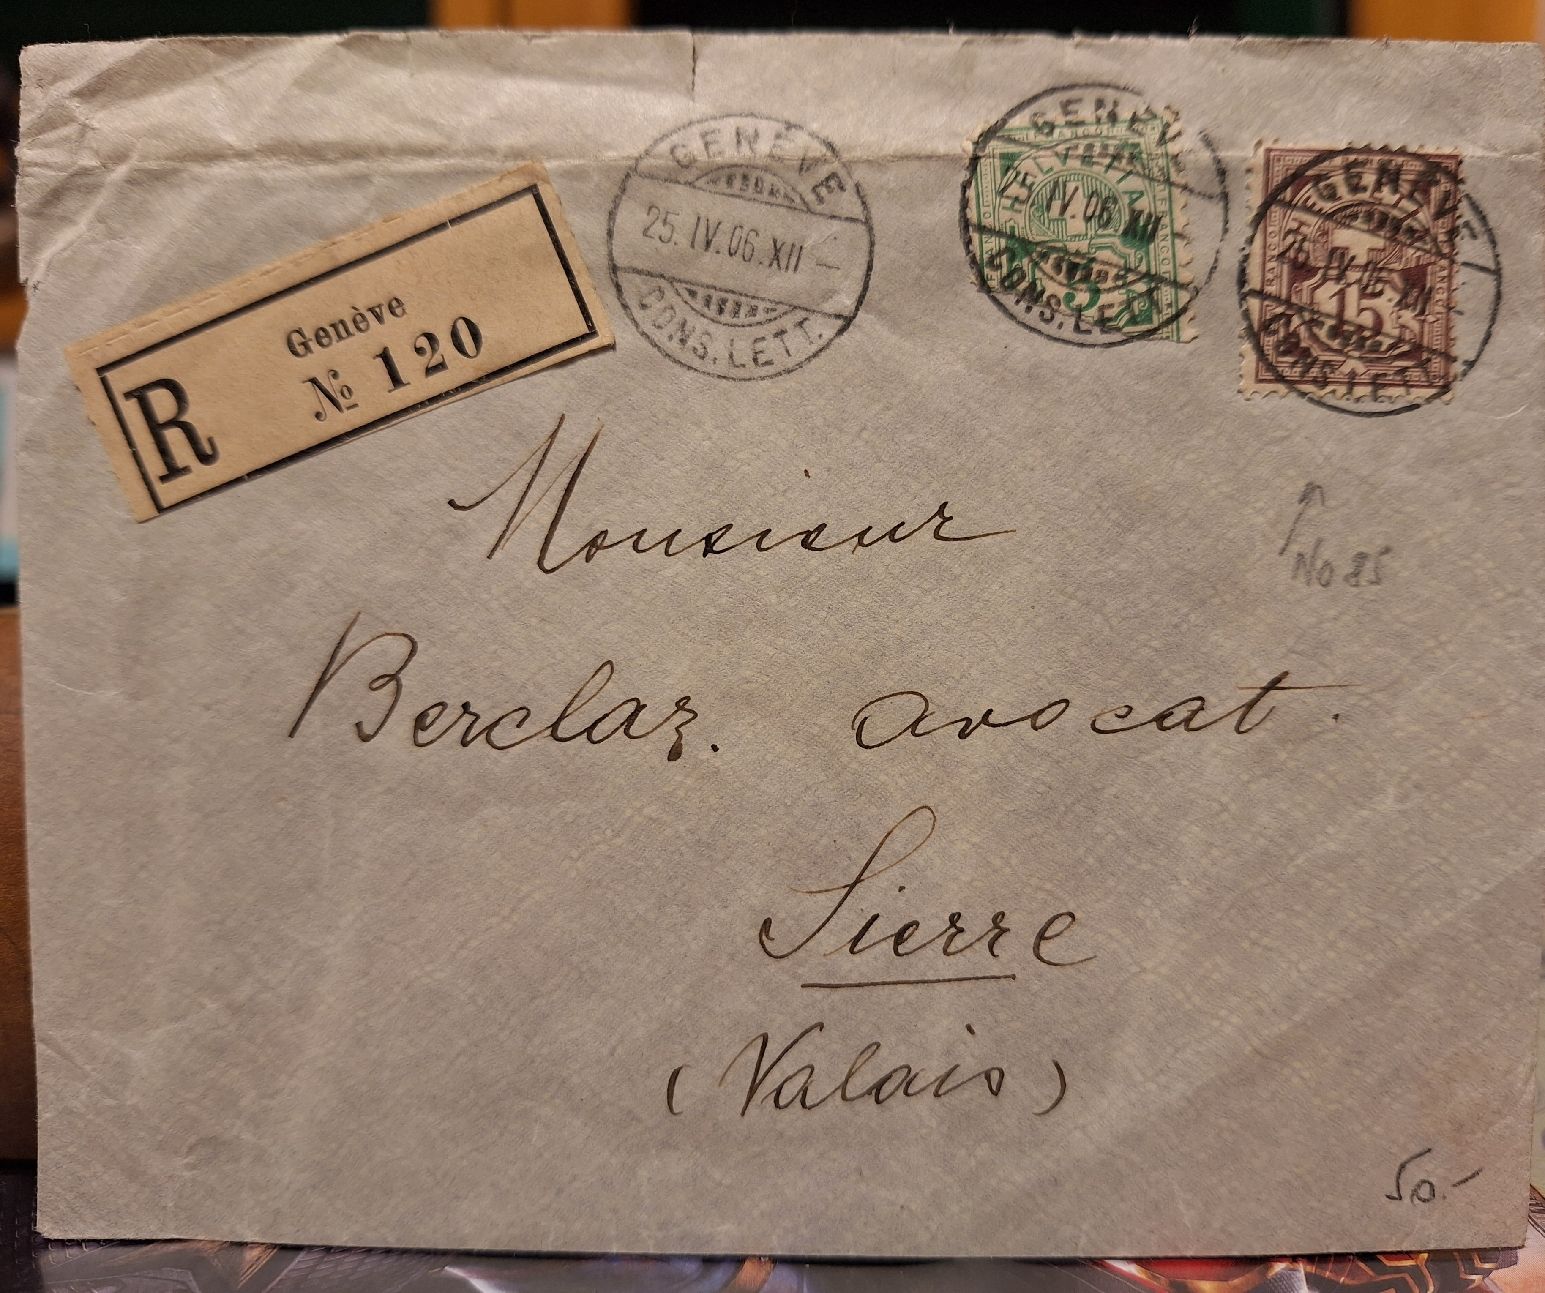 R
Genève
№ 120
GENÈVE
25.IV.06.XII —
CONS. LETT.
GENÈVE
IV.06.XII
CONS. LETT.
HELVETIA
5
GENÈVE
15
Monsieur
No 85
Berclaz. avocat.
Sierre
(Valais)
50.-